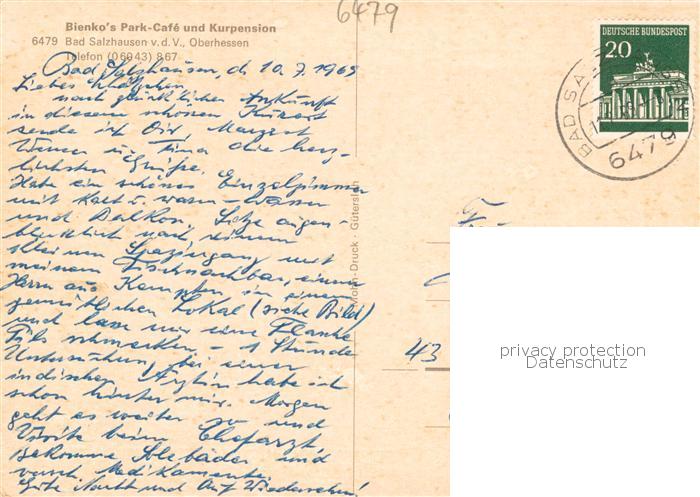 6479
Bienko's Park-Café und Kurpension
6479 Bad Salzhausen v. d. V., Oberhessen
Telefon (06043) 867
Bad Salzhausen, d. 10.7.1969
Liebes
nach glücklicher Ankunft
in diesem schönen Kurort
sende ich Dir, Margret
Werner u. Tina die herz-
lichsten Grüße.
Habe ein schönes Einzelzimmer
mit kalt u. warm-Wasser
und Balkon. Sitze augen-
blicklich nach einem
kleinen Spaziergang mit
meinem Tischnachbar, einem
Herrn aus Kempten in einem
gemütlichen Lokal (siehe Bild)
und lasse mir eine Flasche
Pils schmecken - 1 Stunde
Untersuchung bei einer
indischen Ärztin habe ich
schon hinter mir. Morgen
geht es weiter so und
Visite beim Chefarzt.
Bekomme Solebäder und
versch. Medikamente.
Gute Nacht und Auf Wiedersehen!
Mohn-Druck · Gütersloh
DEUTSCHE BUNDESPOST
20
BAD SA
6479
43
privacy protection
Datenschutz